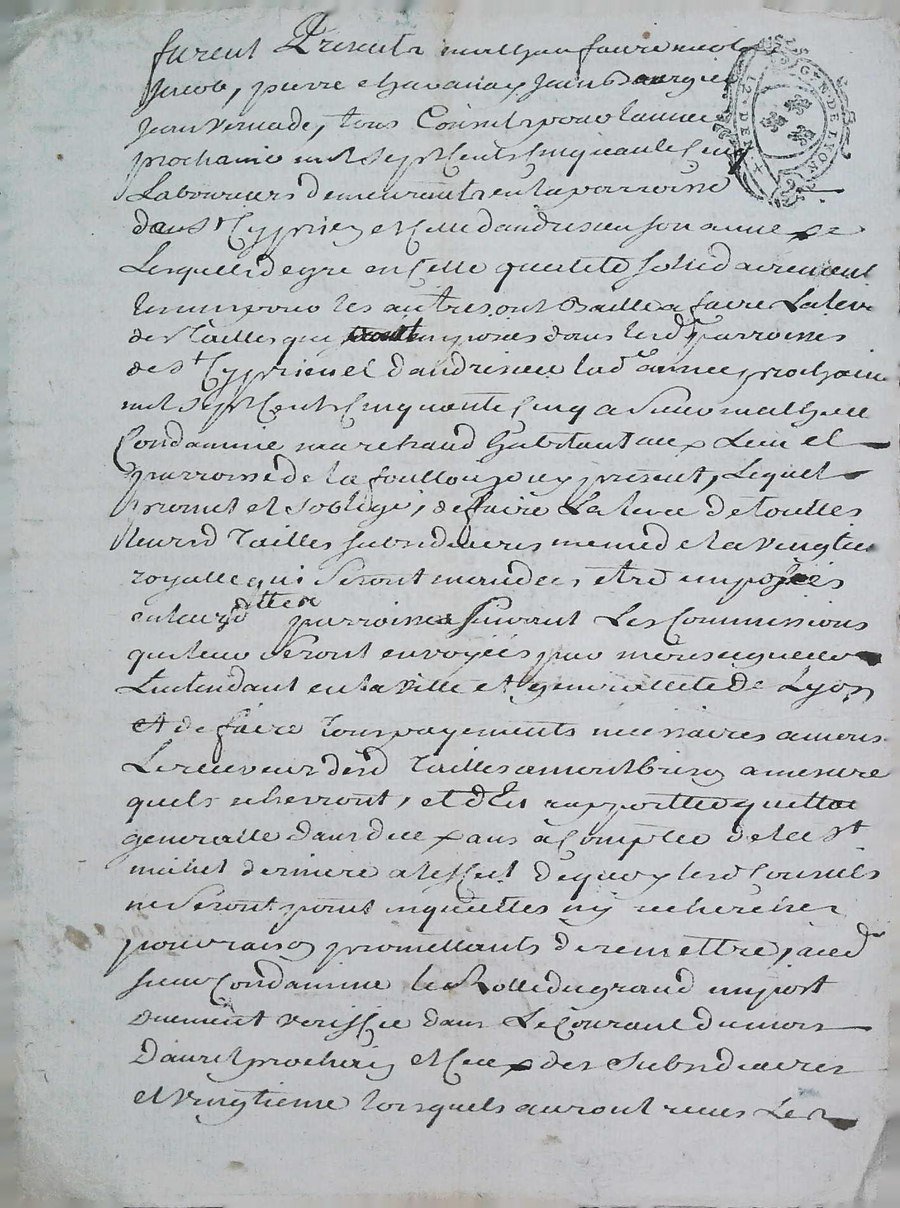 furent Presents mathieu faure nicol
Jacob, pierre chavana Jean
Jean vernade, tous Consuls pour lannee
prochaine mil sept Cents Cinquante Cinq
Laboureurs demeurants en la parroisse
de St Cyprien et
Lesquels de gre en Cette qualité sollidairement
lun pour les autres ont Baillé a faire La leve
des Tailles qui imposes dans lesd parroisses
de St Cyprien et dandrieu lad année prochaine
mil sept Cents Cinquante Cinq a Sieur mathieu
Condamine marchand habitant au Lieu et
parroisse de la foullouze present, Lequel
promet et soblige, de faire La leve de touttes
leursd Tailles subsidiaires meme de la vingtie
royalle qui Seront mandees, et imposées
en leurd ittes parroisses suivant Les Commissions
que leur Seront envoyées par monseigneur
Lintendant en la ville et generallité de Lyon
et de faire tous payements necessaires a mons
Le receveur desd Tailles a montbrison a mesure
quels echerront, et den rapporter quittance
generalle dans deux ans à Compter de la St
michel derniere a leffect dequoy lesd Consuls
ne Seront point inquiettes ny recherchés
pour raison promettants de remettre, aud
sieur Condamine le Rolle du grand import
duement veriffié dans Le Courant du mois
Davril prochain et Ceux des Subsidiaires
et vingtieme lorsquels auront reçus Les
GEN DE LYON
12 DEN